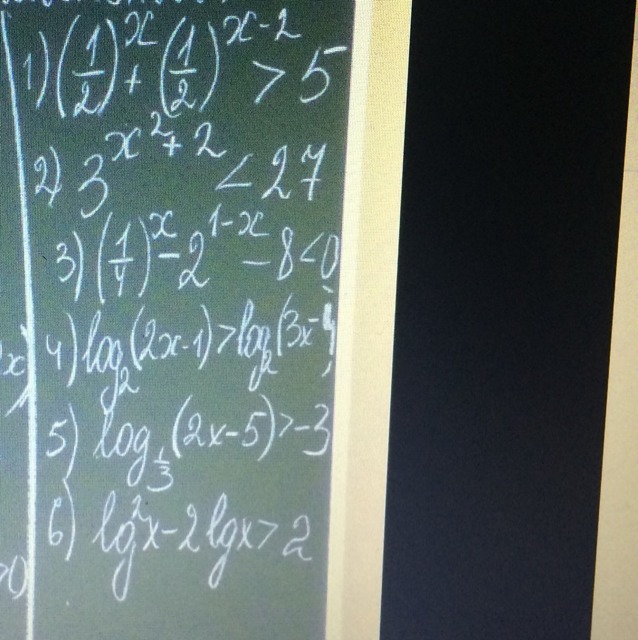 1) (1/2)^x + (1/2)^(x-2) > 5
2) 3^(x²+2) < 27
3) (1/4)^x - 2^(1-x) - 8 < 0
4) log₂(2x-1) > log₂(3x-4)
5) log_(1/3)(2x-5) > -3
6) lg²x - 2lgx > 2